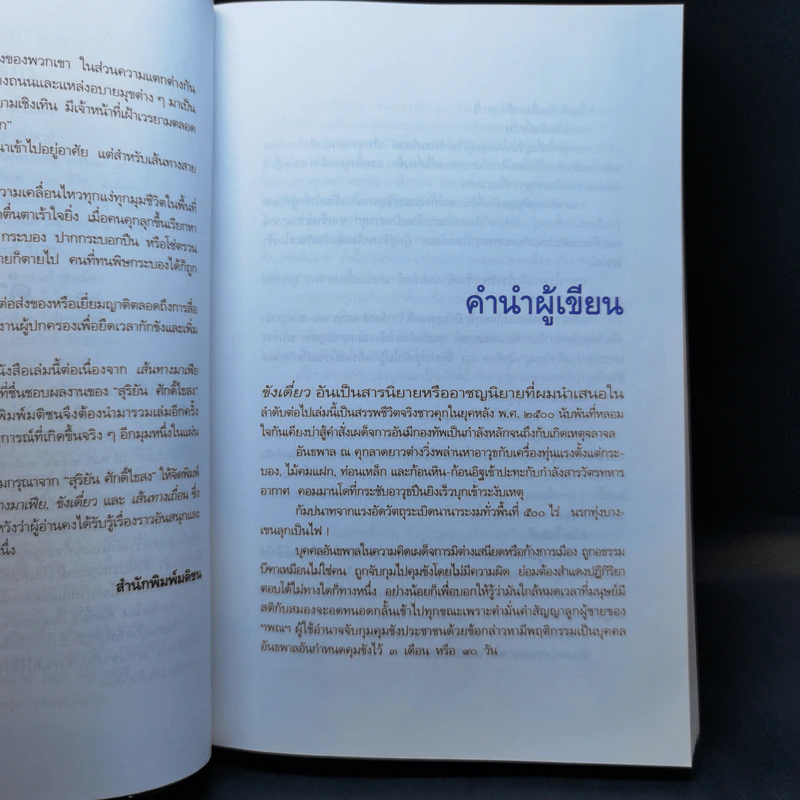 งของพวกเขา ในส่วนความแตกต่างกัน
งถนนและแหล่งอบายมุขต่าง ๆ มาเป็น
ยามเชิงเทิน มีเจ้าหน้าที่เฝ้าเวรยามตลอด
ก"
นาเข้าไปอยู่อาศัย แต่สำหรับเส้นทางสาย
วามเคลื่อนไหวทุกแง่ทุกมุมชีวิตในพื้นที่
ตื่นตาเร้าใจยิ่ง เมื่อคนคุกลุกขึ้นเรียกหา
กระบอง ปากกระบอกปืน หรือโซ่ตรวน
ายก็ตายไป คนที่ทนพิษกระบองได้ก็ถูก
ต่อส่งของหรือเยี่ยมญาติตลอดถึงการสื่อ
งานผู้ปกครองเพื่อยืดเวลากักขังและเพิ่ม
นังสือเล่มนี้ต่อเนื่องจาก เส้นทางมาเฟีย
ที่ชื่นชอบผลงานของ "สุริยัน ศักดิ์ไธสง"
พิมพ์มติชนจึงต้องนำมารวมเล่มอีกครั้ง
การณ์ที่เกิดขึ้นจริง ๆ อีกมุมหนึ่งในแผ่น
มกรุณาจาก "สุริยัน ศักดิ์ไธสง" ให้จัดพิมพ์
ทางมาเฟีย, ขังเดี่ยว และ เส้นทางเถื่อน ซึ่ง
หวังว่าผู้อ่านคงได้รับรู้เรื่องราวอันสนุกและ
นึ่ง
สำนักพิมพ์มติชน
คำนำผู้เขียน
ขังเดี่ยว อันเป็นสารนิยายหรืออาชญนิยายที่ผมนำเสนอใน
ลำดับต่อไปเล่มนี้เป็นสรรพชีวิตจริงชาวคุกในยุคหลัง พ.ศ. ๒๕๐๐ นับพันที่หลอม
ใจกันเคียงบ่าสู้คำสั่งเผด็จการอันมีกองทัพเป็นกำลังหลักจนถึงกับเกิดเหตุจลาจล
อันธพาล ณ คุกลาดยาวต่างวิ่งพล่านหาอาวุธกับเครื่องทุ่นแรงตั้งแต่กระ-
บอง, ไม้คมแฝก, ท่อนเหล็ก และก้อนหิน-ก้อนอิฐเข้าปะทะกับกำลังสารวัตรทหาร
อากาศ คอมมานโดที่กระชับอาวุธปืนยิงเร็วบุกเข้าระงับเหตุ
กัมปนาทจากแรงอัดวัตถุระเบิดนานาระงมทั่วพื้นที่ ๕๐๐ ไร่ นรกทุ่งบาง-
เขนลุกเป็นไฟ !
บุคคลอันธพาลในความคิดเผด็จการมิต่างเสนียดหรือก้างการเมือง ถูกอธรรม
บีฑาเหมือนไม่ใช่คน ถูกจับกุมไปคุมขังโดยไม่มีความผิด ย่อมต้องสำแดงปฏิกิริยา
ตอบโต้ไม่ทางใดก็ทางหนึ่ง อย่างน้อยก็เพื่อบอกให้รู้ว่ามันใกล้หมดเวลาที่มนุษย์มี
สติกับสมองจะอดทนอดกลั้นเข้าไปทุกขณะเพราะคำมั่นคำสัญญาลูกผู้ชายของ
ฯพณฯ ผู้ใช้อำนาจจับกุมคุมขังประชาชนด้วยข้อกล่าวหามีพฤติกรรมเป็นบุคคล
อันธพาลอันกำหนดคุมขังไว้ ๓ เดือน หรือ ๙๐ วัน